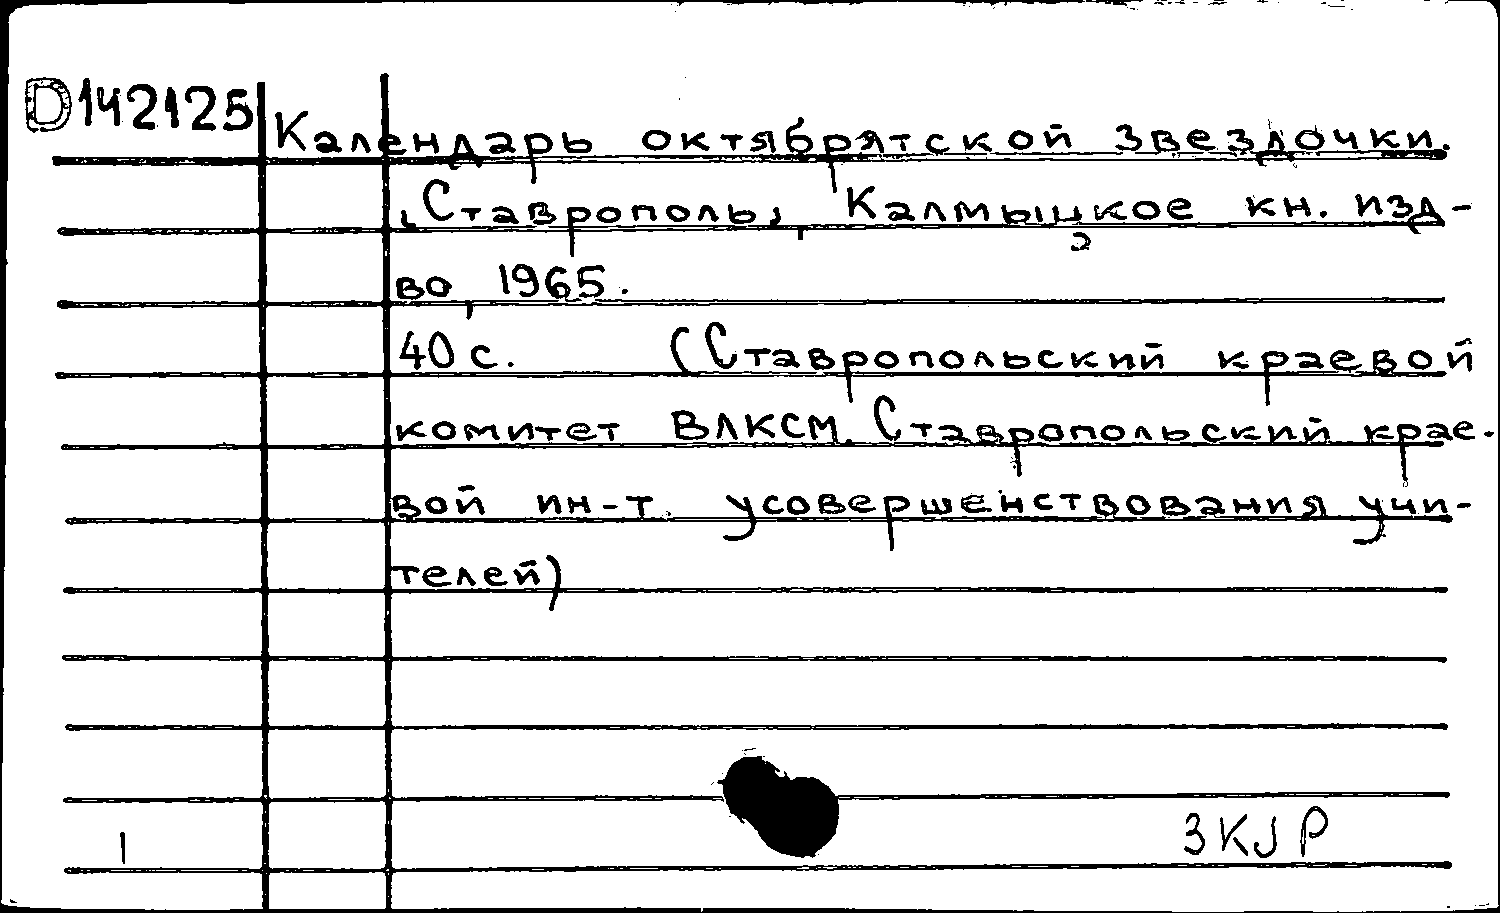 D142125 Календарь октябрятской звездочки.
Ставрополь, Калмыцкое кн. изд-
во, 1965.
40 с. (Ставропольский краевой
комитет ВЛКСМ. Ставропольский крае-
вой ин-т усовершенствования учи-
телей)
1